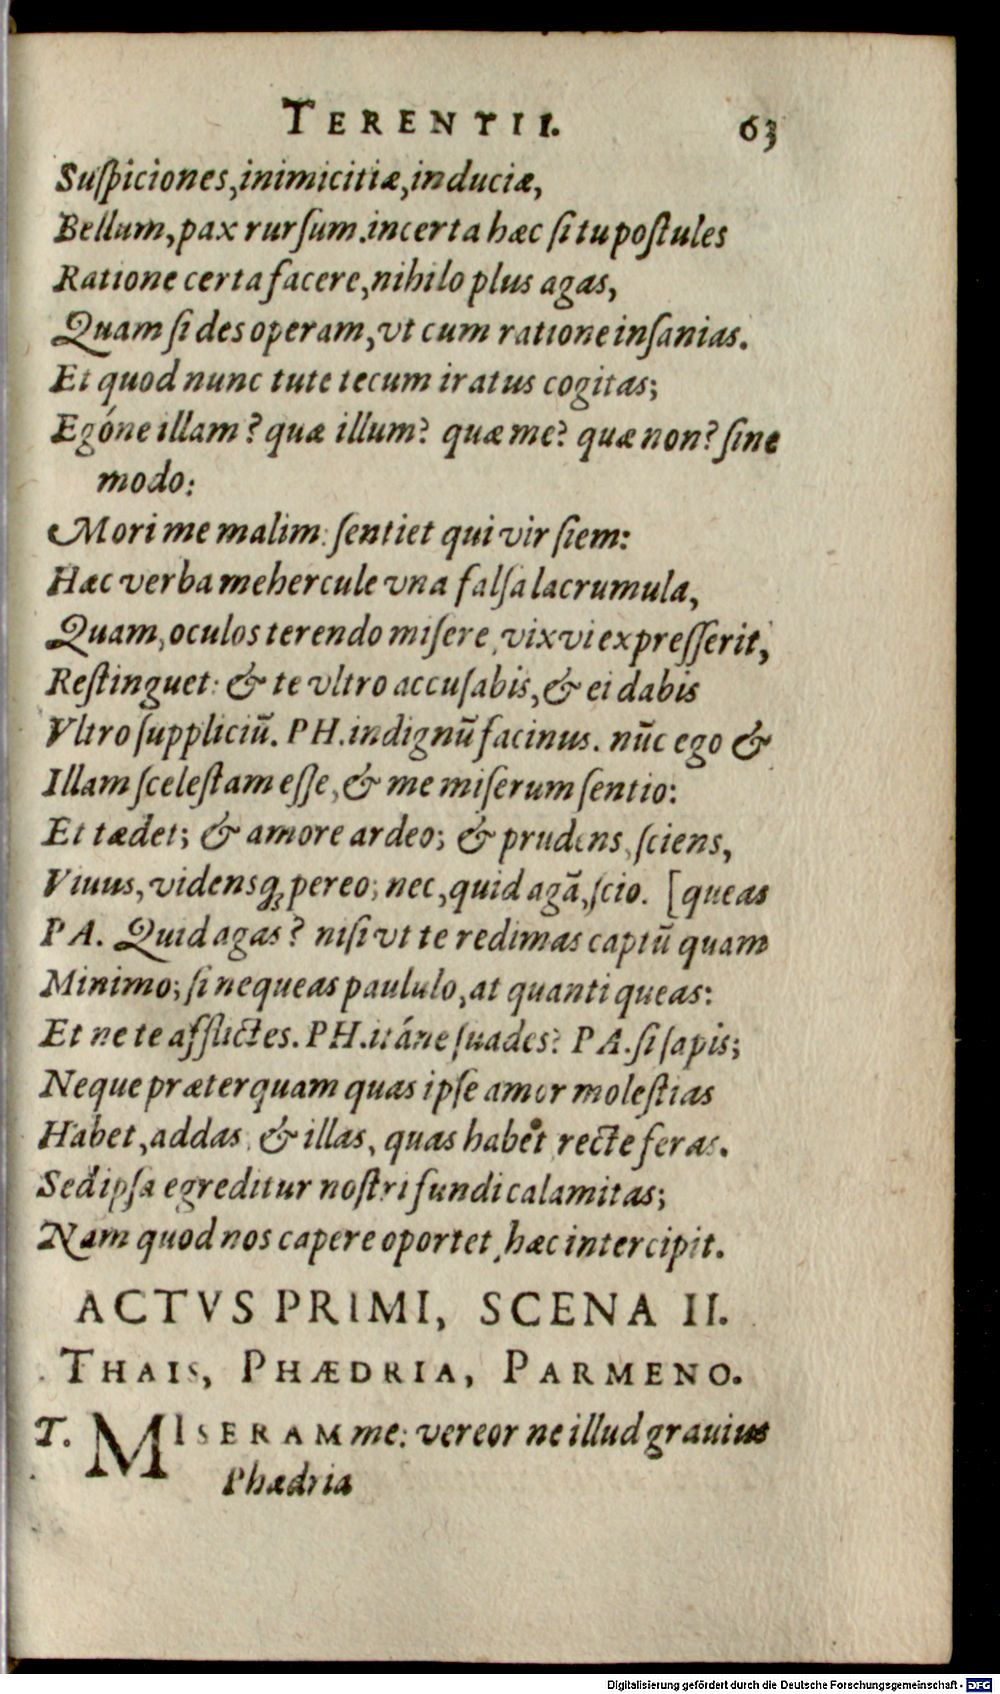 TERENTII. 63
Suſpiciones, inimicitiæ, induciæ,
Bellum, pax rurſum. incerta hæc ſi tu poſtules
Ratione certa facere, nihilo plus agas,
Quam ſi des operam, vt cum ratione inſanias.
Et quod nunc tute tecum iratus cogitas;
Egóne illam? quæ illum? quæ me? quæ non? ſine
modo:
Mori me malim: ſentiet qui vir ſiem:
Hæc verba mehercule vna falſa lacrumula,
Quam, oculos terendo miſere, vix vi expreſſerit,
Reſtinguet: & te vltro accuſabis, & ei dabis
Vltro ſuppliciū. PH. indignū facinus. nūc ego &
Illam ſceleſtam eſſe, & me miſerum ſentio:
Et tædet; & amore ardeo; & prudens, ſciens,
Viuus, vidensq; pereo; nec, quid agā, ſcio. [queas
PA. Quid agas? niſi vt te redimas captū quam
Minimo; ſi nequeas paululo, at quanti queas:
Et ne te afflictes. PH. itáne ſuades? PA. ſi ſapis;
Neque præterquam quas ipſe amor moleſtias
Habet, addas, & illas, quas habet, recte feras.
Sed ipſa egreditur noſtri fundi calamitas;
Nam quod nos capere oportet, hæc intercipit.
ACTVS PRIMI, SCENA II.
THAIS, PHÆDRIA, PARMENO.
T. MISERAM me: vereor ne illud grauius
Phædria
Digitalisierung gefördert durch die Deutsche Forschungsgemeinschaft - DFG